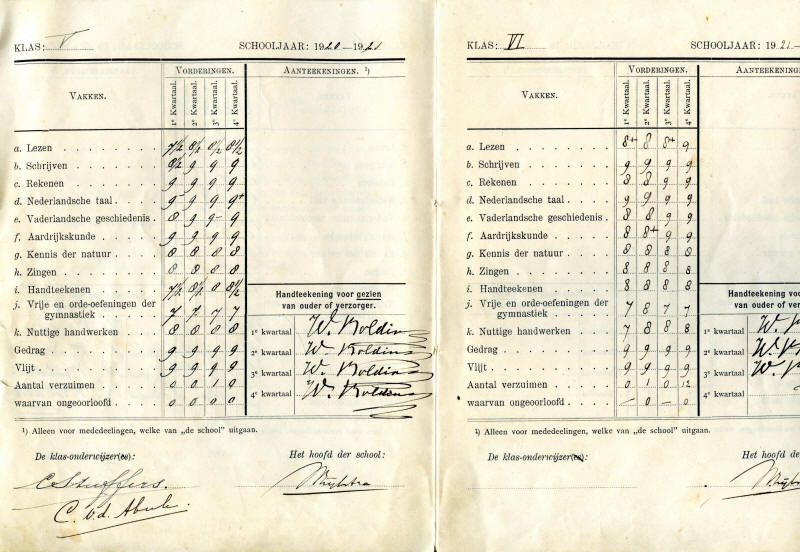 KLAS: V SCHOOLJAAR: 1920—1921
VAKKEN. VORDERINGEN. AANTEEKENINGEN. ¹)
1e Kwartaal. 2e Kwartaal. 3e Kwartaal. 4e Kwartaal.
a. Lezen 7½ 8½ 8½ 8½
b. Schrijven 8½ 9 9 9
c. Rekenen 9 9 9 9
d. Nederlandsche taal 9 9 9 9+
e. Vaderlandsche geschiedenis 8 9 9- 9
f. Aardrijkskunde 9 9 9 9
g. Kennis der natuur 8 8 8 8
h. Zingen 8 8 8 8
i. Handteekenen 7½ 8½ 8 8½
j. Vrije en orde-oefeningen der
gymnastiek 7 7 7 7
k. Nuttige handwerken 8 8 8 8
Gedrag 9 9 9 9
Vlijt 9 9 9 9
Aantal verzuimen 0 0 1 0
waarvan ongeoorloofd 0 0 0 0
Handteekening voor gezien
van ouder of verzorger.
1e kwartaal W. Koldin
2e kwartaal W. Koldin
3e kwartaal W. Koldin
4e kwartaal W. Koldin
¹) Alleen voor mededeelingen, welke van „de school" uitgaan.
De klas-onderwijzer(es): Het hoofd der school:
C. v.d. Abeele.
KLAS: VI SCHOOLJAAR: 1921—
VAKKEN. VORDERINGEN. AANTEEKENIN
1e Kwartaal. 2e Kwartaal. 3e Kwartaal. 4e Kwartaal.
a. Lezen 8+ 8 8+ 9
b. Schrijven 9 9 9 9
c. Rekenen 8 8 9 9
d. Nederlandsche taal 9 9 9 9
e. Vaderlandsche geschiedenis 8 8 9 9
f. Aardrijkskunde 8 8+ 9 9
g. Kennis der natuur 8 8 8 8
h. Zingen 8 8 8 8
i. Handteekenen 8 8 8 8
j. Vrije en orde-oefeningen der
gymnastiek 7 8 7 7
k. Nuttige handwerken 7 8 8 8
Gedrag 9 9 9 9
Vlijt 9 9 9 9
Aantal verzuimen 0 1 0 12
waarvan ongeoorloofd — 0 — 0
Handteekening vo
van ouder of ver
1e kwartaal W.
2e kwartaal W.
3e kwartaal W.
4e kwartaal
¹) Alleen voor mededeelingen, welke van „de school" uitgaan.
De klas-onderwijzer(es): Het hoofd de